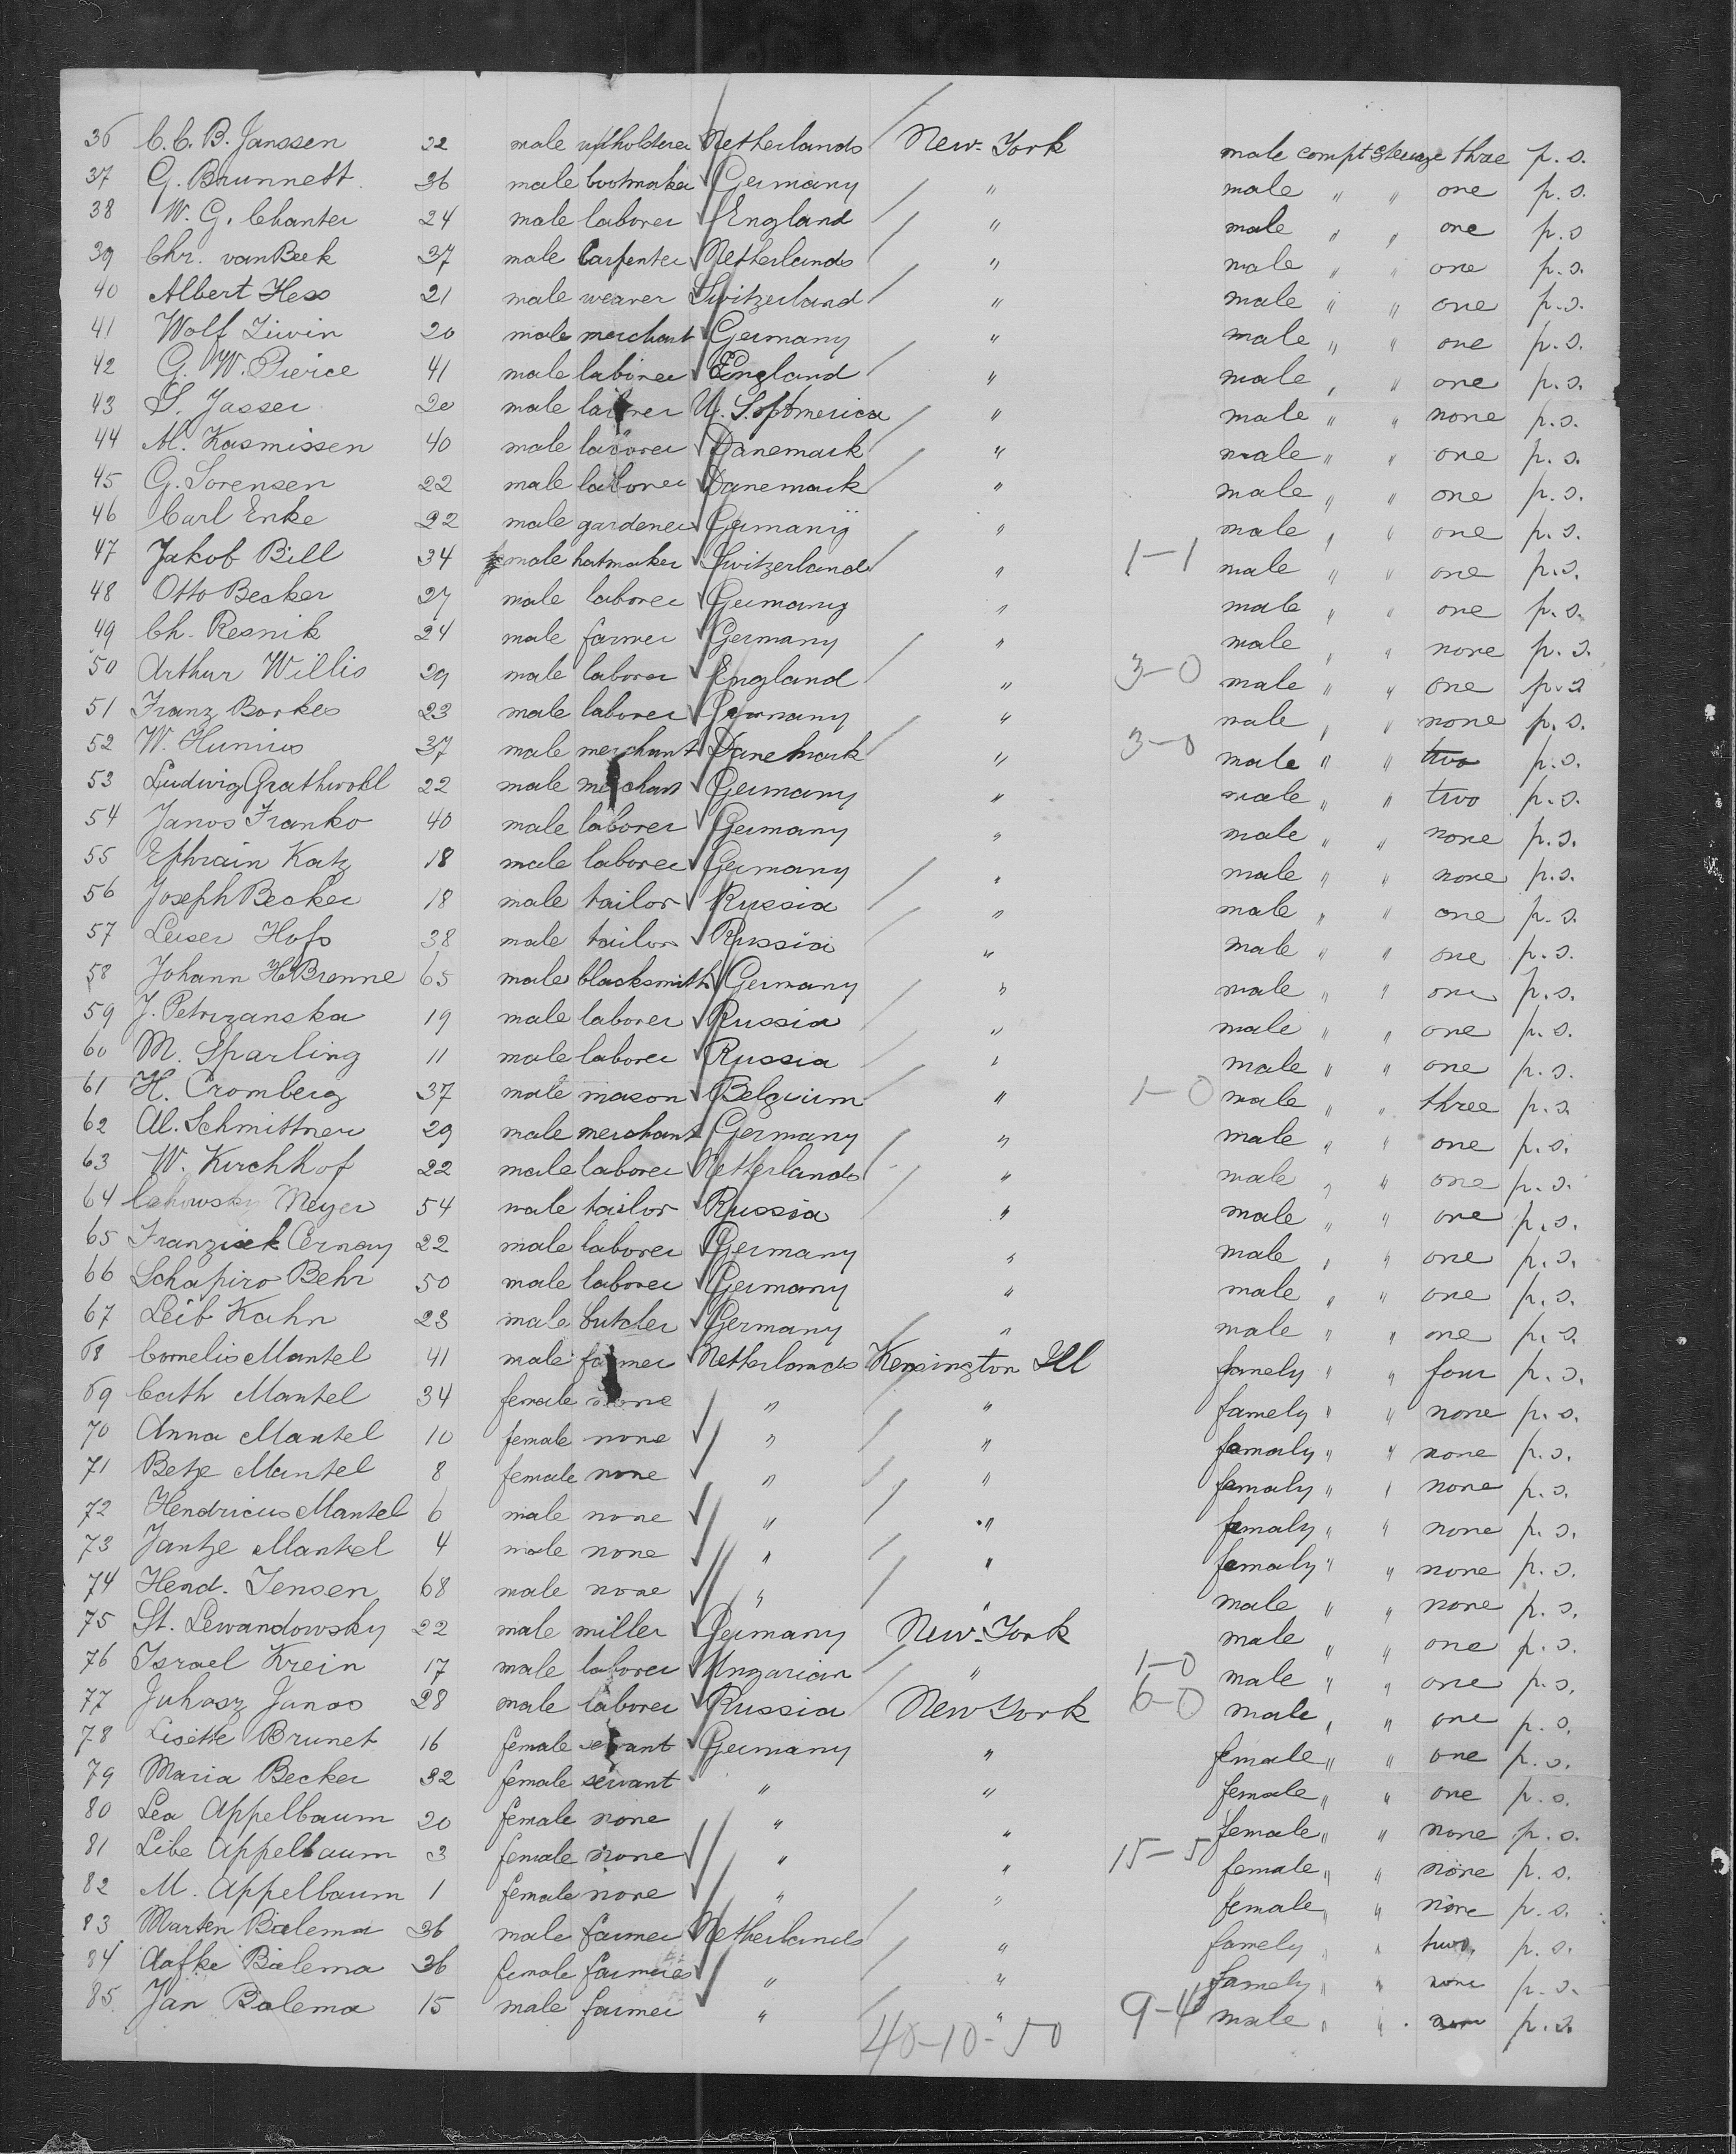 36 C. C. B. Janssen 22 male upholsterer Netherlands New-York male compt Steerage three p. s.
37 G. Brunnett 36 male bootmaker Germany " male " " one p. s.
38 W. G. Chanter 24 male laborer England " male " " one p. s
39 Chr. van Beek 37 male Carpenter Netherlands " male " " one p. s.
40 Albert Hess 21 male weaver Switzerland " male " " one p. s.
41 Wolf 20 male merchant Germany " male " " one p. s.
42 G. W. Pierce 41 male laborer England " male " " one p. s.
43 S. Jasser 20 male laborer U. S. of America " male " " none p. s.
44 M. Kasmissen 40 male laborer Danemark " male " " one p. s.
45 G. Sorensen 22 male laborer Danemark " male " " one p. s.
46 Carl Enke 22 male gardener Germanÿ " male " " one p. s.
47 Jakob Bill 34 male hatmaker Switzerland " 1-1 male " " one p. s.
48 Otto Becker 27 male laborer Germany " male " " one p. s.
49 Ch. Resnik 24 male farmer Germany " male " " none p. s.
50 Arthur Willis 29 male laborer England " 3-0 male " " one p. s
51 Franz Borkes 23 male laborer Germany " male " " none p. s.
52 W. Hunius 37 male merchant Danemark " 3-0 male " " two p. s.
53 Ludwig Grathwohl 22 male merchant Germany " male " " two p. s.
54 Janos Franko 40 male laborer Germany " male " " none p. s.
55 Ephrain Katz 18 male laborer Germany " male " " none p. s.
56 Joseph Becker 18 male tailor Russia " male " " one p. s.
57 Leiser Hofs 38 male tailor Russia " male " " one p. s.
58 Johann H Brenne 65 male blacksmith Germany " male " " one p. s.
59 J. Petrzanska 19 male laborer Russia " male " " one p. s.
60 M. Sparling 11 male laborer Russia " male " " one p. s.
61 H. Cromberg 37 male mason Belgium " 1-0 male " " three p. s.
62 Al. Schmittner 29 male merchant Germany " male " " one p. s.
63 W. Kirchhof 22 male laborer Netherlands " male " " one p. s.
64 Meyer 54 male tailor Russia " male " " one p. s.
65 Franzisek Cernay 22 male laborer Germany " male " " one p. s.
66 Schapiro Behr 50 male laborer Germany " male " " one p. s.
67 Leib Kahn 23 male butcler Germany " male " " one p. s.
68 Cornelis Mantel 41 male farmer Netherlands Kensington Ill famely " " four p. s.
69 Cath Mantel 34 female none " " famely " " none p. s.
70 Anna Mantel 10 female none " " famaly " " none p. s.
71 Betze Mantel 8 female none " " famaly " " none p. s.
72 Hendricus Mantel 6 male none " " famaly " " none p. s.
73 Jantze Mantel 4 male none " " famaly " " none p. s.
74 Hend. Jensen 68 male none " " male " " none p. s.
75 St. Lewandowsky 22 male miller Germany New-York male " " one p. s.
76 Israel Krein 17 male laborer Ungarian " 1-0 male " " one p. s.
77 Juhasz Janos 28 male laborer Russia New York 6-0 male " " one p. s.
78 Lisette Brunet 16 female servant Germany " female " " one p. s.
79 Maria Becker 32 female servant " " female " " one p. s.
80 Lea Appelbaum 20 female none " " female " " none p. s.
81 Libe Appelbaum 3 female none " " 15-5 female " " none p. s.
82 M. Appelbaum 1 female none " " female " " none p. s.
83 Marten Balema 36 male farmer Netherlands " famely " " two p. s.
84 Aafke Balema 36 female " " famely " " none p. s.
85 Jan Balema 15 male farmer " " 9-4 male " " p. s.
40-10-50